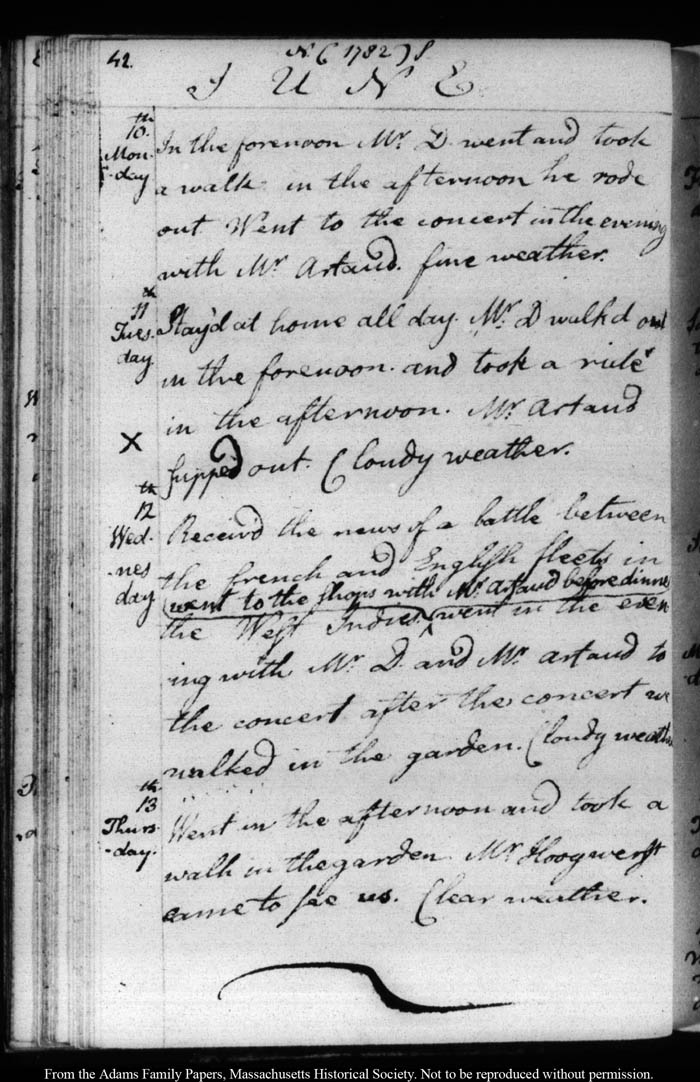 42.
N (1782) S
J U N E
10.th
Mon-
-day
In the forenoon Mr. D. went and took
a walk in the afternoon he rode
out Went to the concert in the evening
with Mr. Artaud. fine weather.
11th
Tues-
day.
Stay'd at home all day. Mr. D walk'd out
in the forenoon. and took a ride
in the afternoon. Mr. Artaud
X
supped out. Cloudy weather.
12th
Wed-
-nes
day
Receiv'd the news of a battle between
the french and English fleets in
(went to the shops with Mr. Artaud before dinner
the West Indies. ^ went in the even
ing with Mr. D. and Mr. Artaud to
the concert after the concert we
walked in the garden. Cloudy weather
13th
Thurs-
-day.
Went in the afternoon and took a
walk in the garden Mr. Hoogwerst
came to see us. Clear weather.
From the Adams Family Papers, Massachusetts Historical Society. Not to be reproduced without permission.